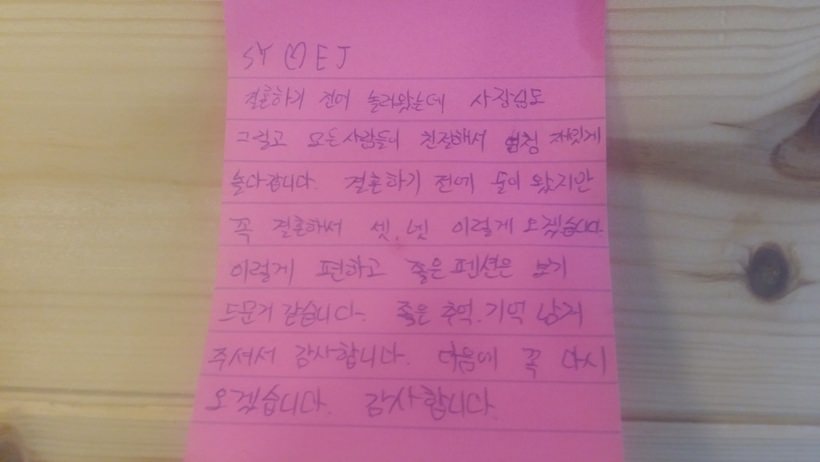 SY ♡ EJ
결혼하기 전에 놀러왔는데 사장님도
그렇고 모든사람들이 친절해서 엄청 재밌게
놀다갑니다. 결혼하기 전에 둘이 왔지만
꼭 결혼해서 셋, 넷 이렇게 오겠습니다.
이렇게 편하고 좋은펜션은 보기
드문거 같습니다. 좋은 추억.기억 남겨
주셔서 감사합니다. 다음에 꼭 다시
오겠습니다. 감사합니다.